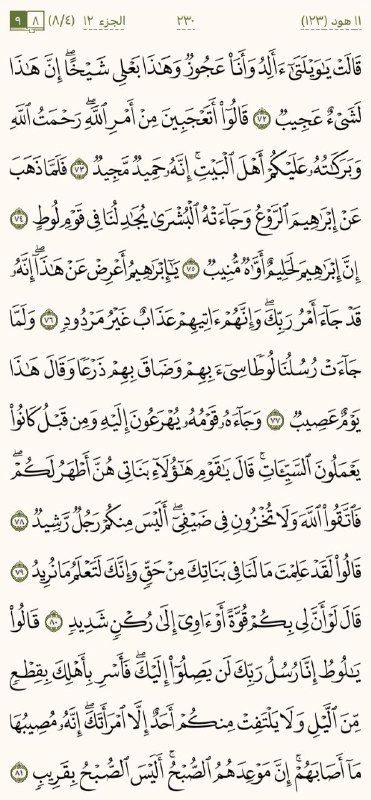 ١١ هود (١٢٣) ٢٣٠ الجزء ١٢ (٨/٤) ٨ ٩
قَالَتْ يَٰوَيْلَتَىٰٓ ءَأَلِدُ وَأَنَا۠ عَجُوزٌ وَهَٰذَا بَعْلِى شَيْخًا ۖ إِنَّ هَٰذَا
لَشَىْءٌ عَجِيبٌ ٧٢ قَالُوٓا۟ أَتَعْجَبِينَ مِنْ أَمْرِ ٱللَّهِ ۖ رَحْمَتُ ٱللَّهِ
وَبَرَكَٰتُهُۥ عَلَيْكُمْ أَهْلَ ٱلْبَيْتِ ۚ إِنَّهُۥ حَمِيدٌ مَّجِيدٌ ٧٣ فَلَمَّا ذَهَبَ
عَنْ إِبْرَٰهِيمَ ٱلرَّوْعُ وَجَآءَتْهُ ٱلْبُشْرَىٰ يُجَٰدِلُنَا فِى قَوْمِ لُوطٍ ٧٤
إِنَّ إِبْرَٰهِيمَ لَحَلِيمٌ أَوَّٰهٌ مُّنِيبٌ ٧٥ يَٰٓإِبْرَٰهِيمُ أَعْرِضْ عَنْ هَٰذَآ ۖ إِنَّهُۥ
قَدْ جَآءَ أَمْرُ رَبِّكَ ۖ وَإِنَّهُمْ ءَاتِيهِمْ عَذَابٌ غَيْرُ مَرْدُودٍ ٧٦ وَلَمَّا
جَآءَتْ رُسُلُنَا لُوطًا سِىٓءَ بِهِمْ وَضَاقَ بِهِمْ ذَرْعًا وَقَالَ هَٰذَا
يَوْمٌ عَصِيبٌ ٧٧ وَجَآءَهُۥ قَوْمُهُۥ يُهْرَعُونَ إِلَيْهِ وَمِن قَبْلُ كَانُوا۟
يَعْمَلُونَ ٱلسَّيِّـَٔاتِ ۚ قَالَ يَٰقَوْمِ هَٰٓؤُلَآءِ بَنَاتِى هُنَّ أَطْهَرُ لَكُمْ ۖ
فَٱتَّقُوا۟ ٱللَّهَ وَلَا تُخْزُونِ فِى ضَيْفِىٓ ۖ أَلَيْسَ مِنكُمْ رَجُلٌ رَّشِيدٌ ٧٨
قَالُوا۟ لَقَدْ عَلِمْتَ مَا لَنَا فِى بَنَاتِكَ مِنْ حَقٍّ وَإِنَّكَ لَتَعْلَمُ مَا نُرِيدُ ٧٩
قَالَ لَوْ أَنَّ لِى بِكُمْ قُوَّةً أَوْ ءَاوِىٓ إِلَىٰ رُكْنٍ شَدِيدٍ ٨٠ قَالُوا۟
يَٰلُوطُ إِنَّا رُسُلُ رَبِّكَ لَن يَصِلُوٓا۟ إِلَيْكَ ۖ فَأَسْرِ بِأَهْلِكَ بِقِطْعٍ
مِّنَ ٱلَّيْلِ وَلَا يَلْتَفِتْ مِنكُمْ أَحَدٌ إِلَّا ٱمْرَأَتَكَ ۖ إِنَّهُۥ مُصِيبُهَا
مَآ أَصَابَهُمْ ۚ إِنَّ مَوْعِدَهُمُ ٱلصُّبْحُ ۚ أَلَيْسَ ٱلصُّبْحُ بِقَرِيبٍ ٨١